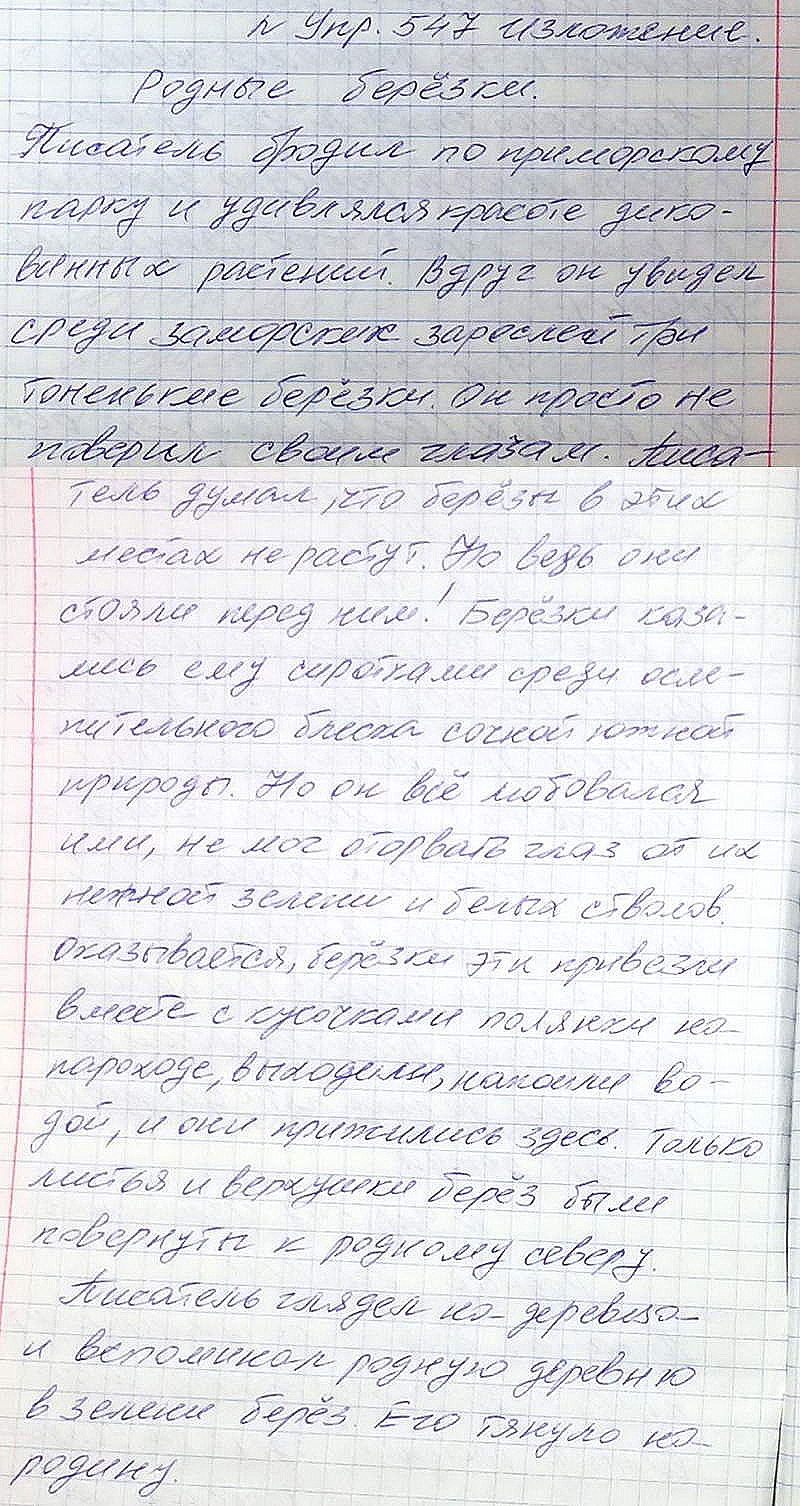 Упр. 547 Изложение.
Родные берёзки.
Писатель бродил по приморскому
парку и удивлялся красоте дико-
винных растений. Вдруг он увидел
среди заморских зарослей три
тоненькие берёзки. Он просто не
поверил своим глазам. Писа-
тель думал, что берёзы в этих
местах не растут. Но ведь они
стояли перед ним! Берёзки каза-
лись ему сиротками среди осле-
пительного блеска сочной южной
природы. Но он всё любовался
ими, не мог оторвать глаз от их
нежной зелени и белых стволов.
Оказывается, берёзки эти привезли
вместе с кусочками полянки на
пароходе, выходили, напоили во-
дой, и они прижились здесь. Только
листья и верхушки берёз были
повернуты к родному северу.
Писатель глядел на деревца
и вспоминал родную деревню
в зелени берёз. Его тянуло на
родину.